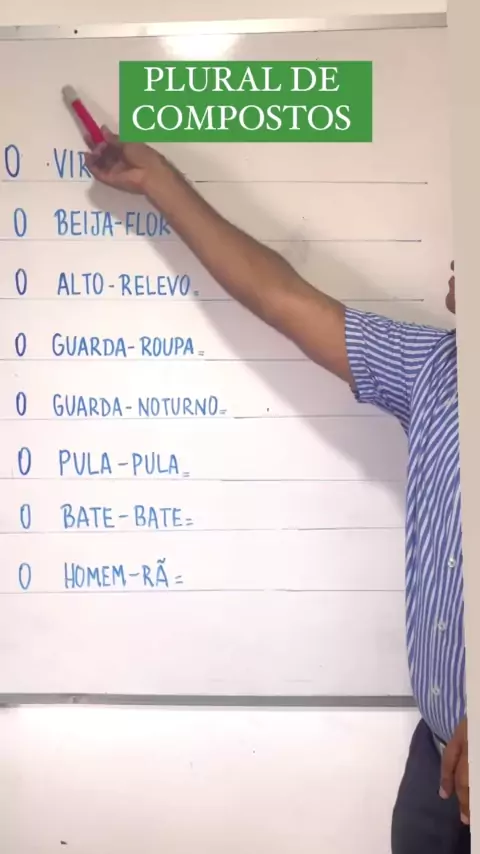 PLURAL DE
COMPOSTOS
O
O BEIJA-FLOR
O ALTO-RELEVO=
O GUARDA-ROUPA=
O GUARDA-NOTURNO=
O PULA-PULA=
O BATE-BATE=
O HOMEM-RÃ=